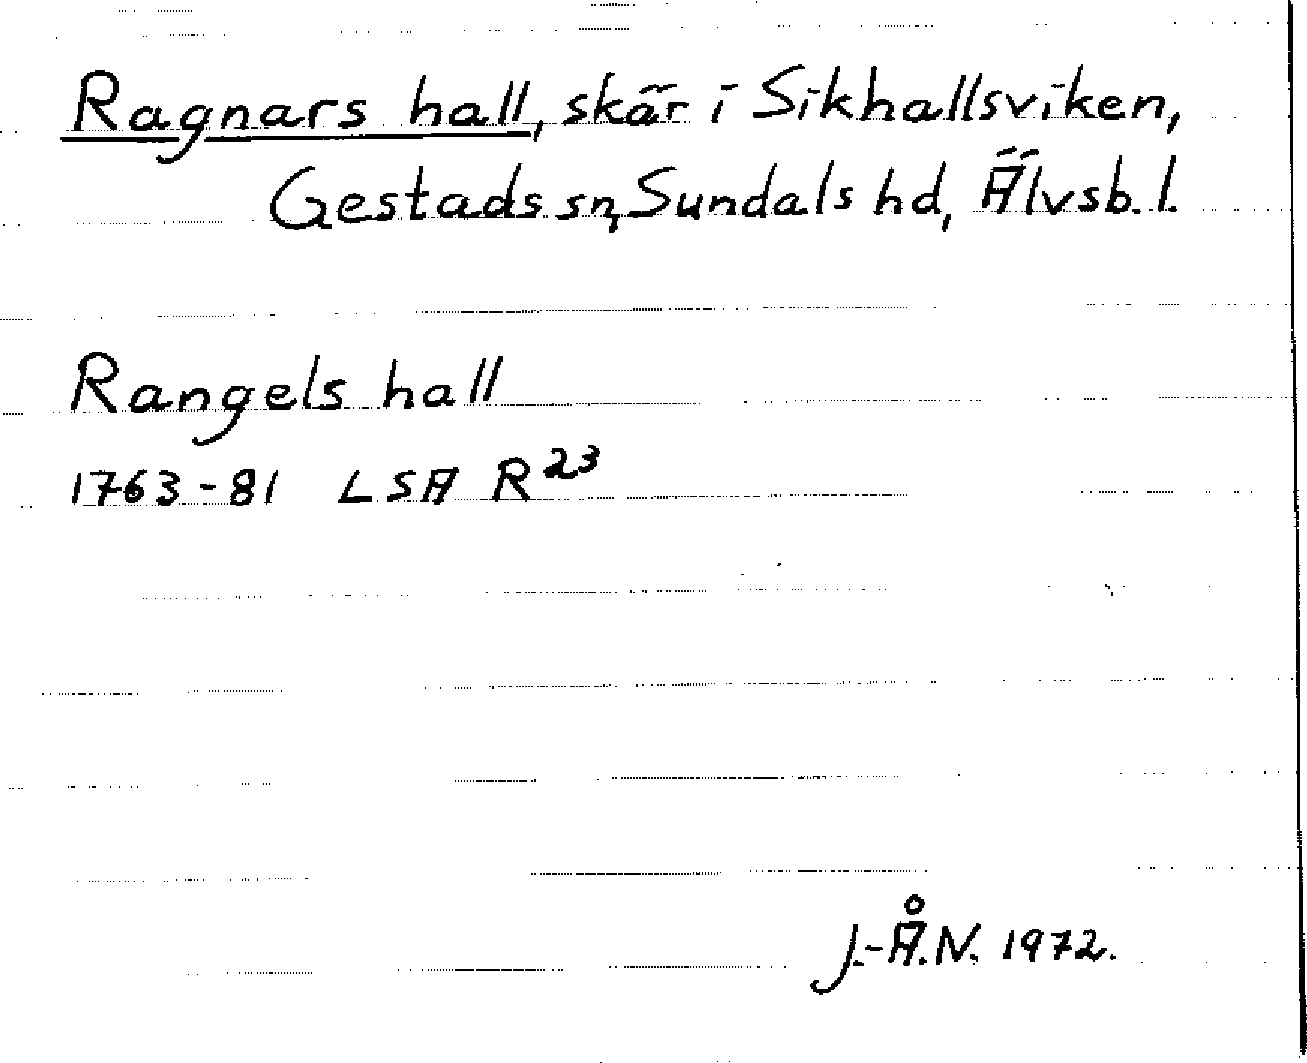 Ragnars hall, skär i Sikhallsviken,
Gestads sn, Sundals hd, Älvsb. l.
Rangels hall
1763-81 LSA R 23
J.-Å.N. 1972.